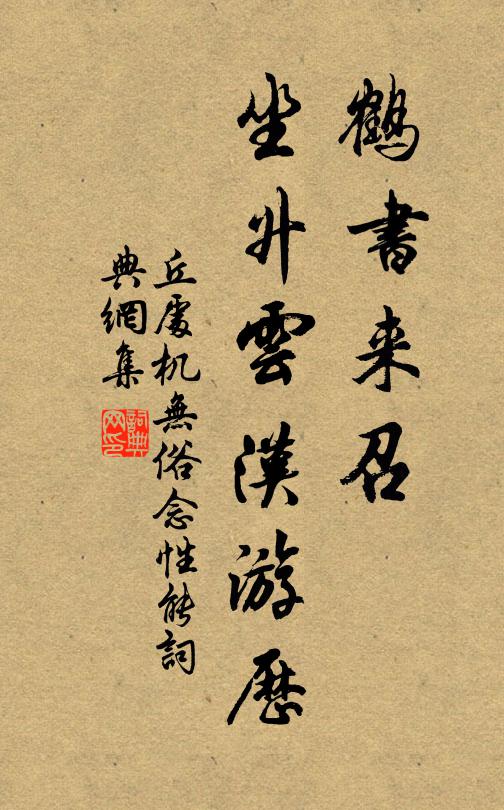 鶴書来召
坐升雲漢游歷
丘處机無俗念性能詞
典網集
詞典
网印